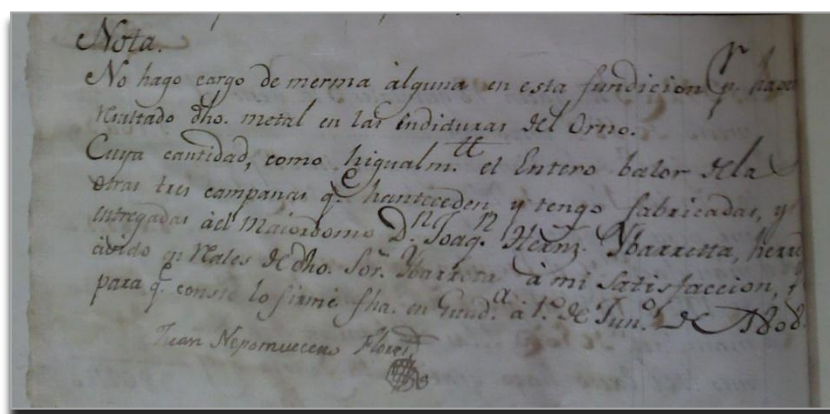 Nota.
No hago cargo de merma alguna en esta fundicion pr. haver
rezultado dho. metal en las endiduras del Orno.
Cuya cantidad, como higualmte. el Entero balor de la
otras tres campanas qe. hanteceden, y tengo fabricadas, y
entregadas ael Maiordomo Dn. Joaqn. Hernz. Ybarretta, herre
civido en Rales de dho. Sor. Ybarreta à mi satisfaccion, y
para qe. conste lo firmé fha. en Guada. à 1º. de Junº. de 1808.
Juan Nepomuceno Flores